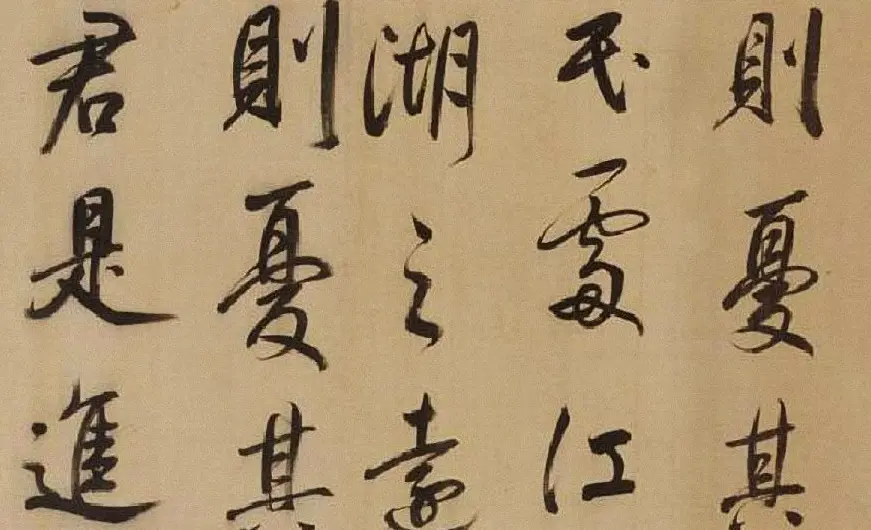 則憂其
民處江
湖之遠
則憂其
君是進